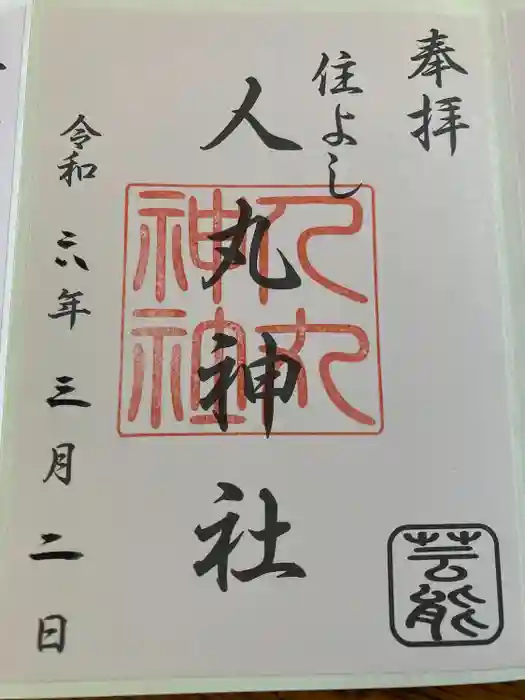 奉拝
住よし
人丸神社
人丸
神社
令和六年三月二日
芸能